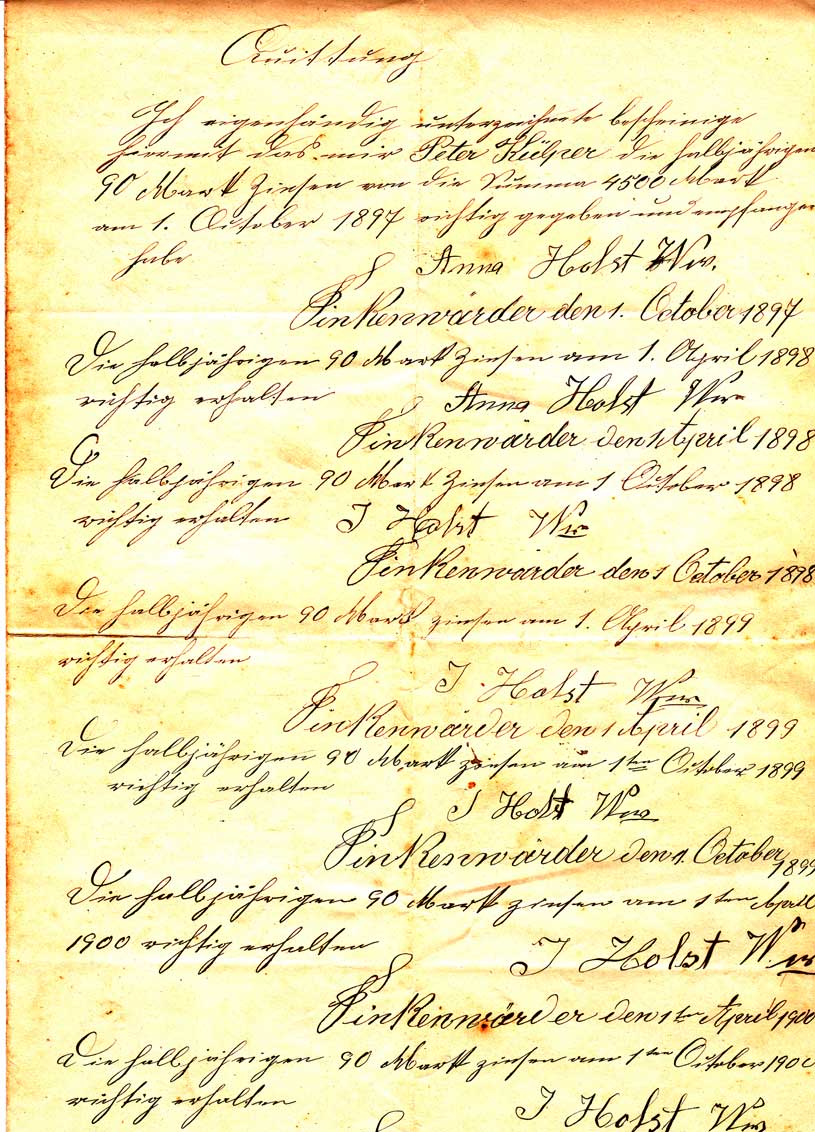 Quittung
Ich eigenhändig unterzeichnete bescheinige
hiermit das mir Peter Külper die halbjährigen
90 Mark Zinsen von die Summa 4500 Mark
am 1. October 1897 richtig gegeben und empfangen
habe
Anna Holst Ww.
Finkenwärder den 1. October 1897
Die halbjährigen 90 Mark Zinsen am 1. April 1898
richtig erhalten
Anna Holst Ww
Finkenwärder den 1 April 1898
Die halbjährigen 90 Mark Zinsen am 1 October 1898
richtig erhalten J Holst Ww
Finkenwärder den 1 October 1898
Die halbjährigen 90 Mark zinsen am 1. April 1899
richtig erhalten
J. Holst Ww
Finkenwärder den 1 April 1899
Die halbjährigen 90 Mark zinsen am 1ten October 1899
richtig erhalten
J Holst Ww
Finkenwärder den 1. October 1899
Die halbjährigen 90 Mark zinsen am 1ten April
1900 richtig erhalten
J Holst Ww
Finkenwärder den 1ten April 1900
Die halbjährigen 90 Mark zinsen am 1ten October 1900
richtig erhalten
J. Holst Ww